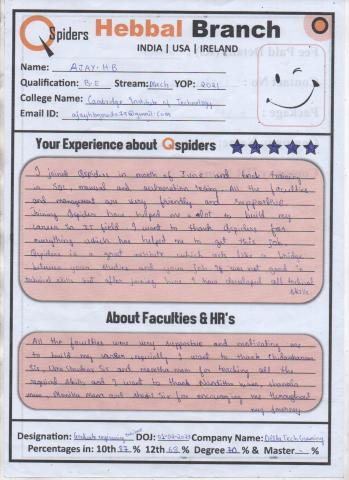 QSpiders Hebbal Branch
INDIA | USA | IRELAND
Name: AJAY.H.B
Qualification: B.E Stream: Mech YOP: 2021
College Name: Cambridge Institute of Technology
Email ID:
Your Experience about Qspiders
I joined Qspiders in month of June and took training
in SQL, manual and automation testing All the faculties
and management are very friendly and supportive
Joining Qspider have helped me a lot to build my
career in IT field. I want to thank Qspiders for
everything which has helped me to get this job.
Qspiders is a great institute which acts like a bridge
between your studies and your job I was not good in
technical skills but after joining here I have developed all technical
skills.
About Faculties & HR's
All the faculties were very supportive and motivating me
to build my career especially I want to thank Chidambaram
Sir, Sir and mam for teaching all the
required skills and I want to thank Nanditha mam,
mam, Monika mam and Sir for encouraging me throughout
my journey.
Designation: Graduate engineering DOJ: Company Name: Delta Tech Gaming
Percentages in: 10th % 12th 68 % Degree 70 % & Master - %